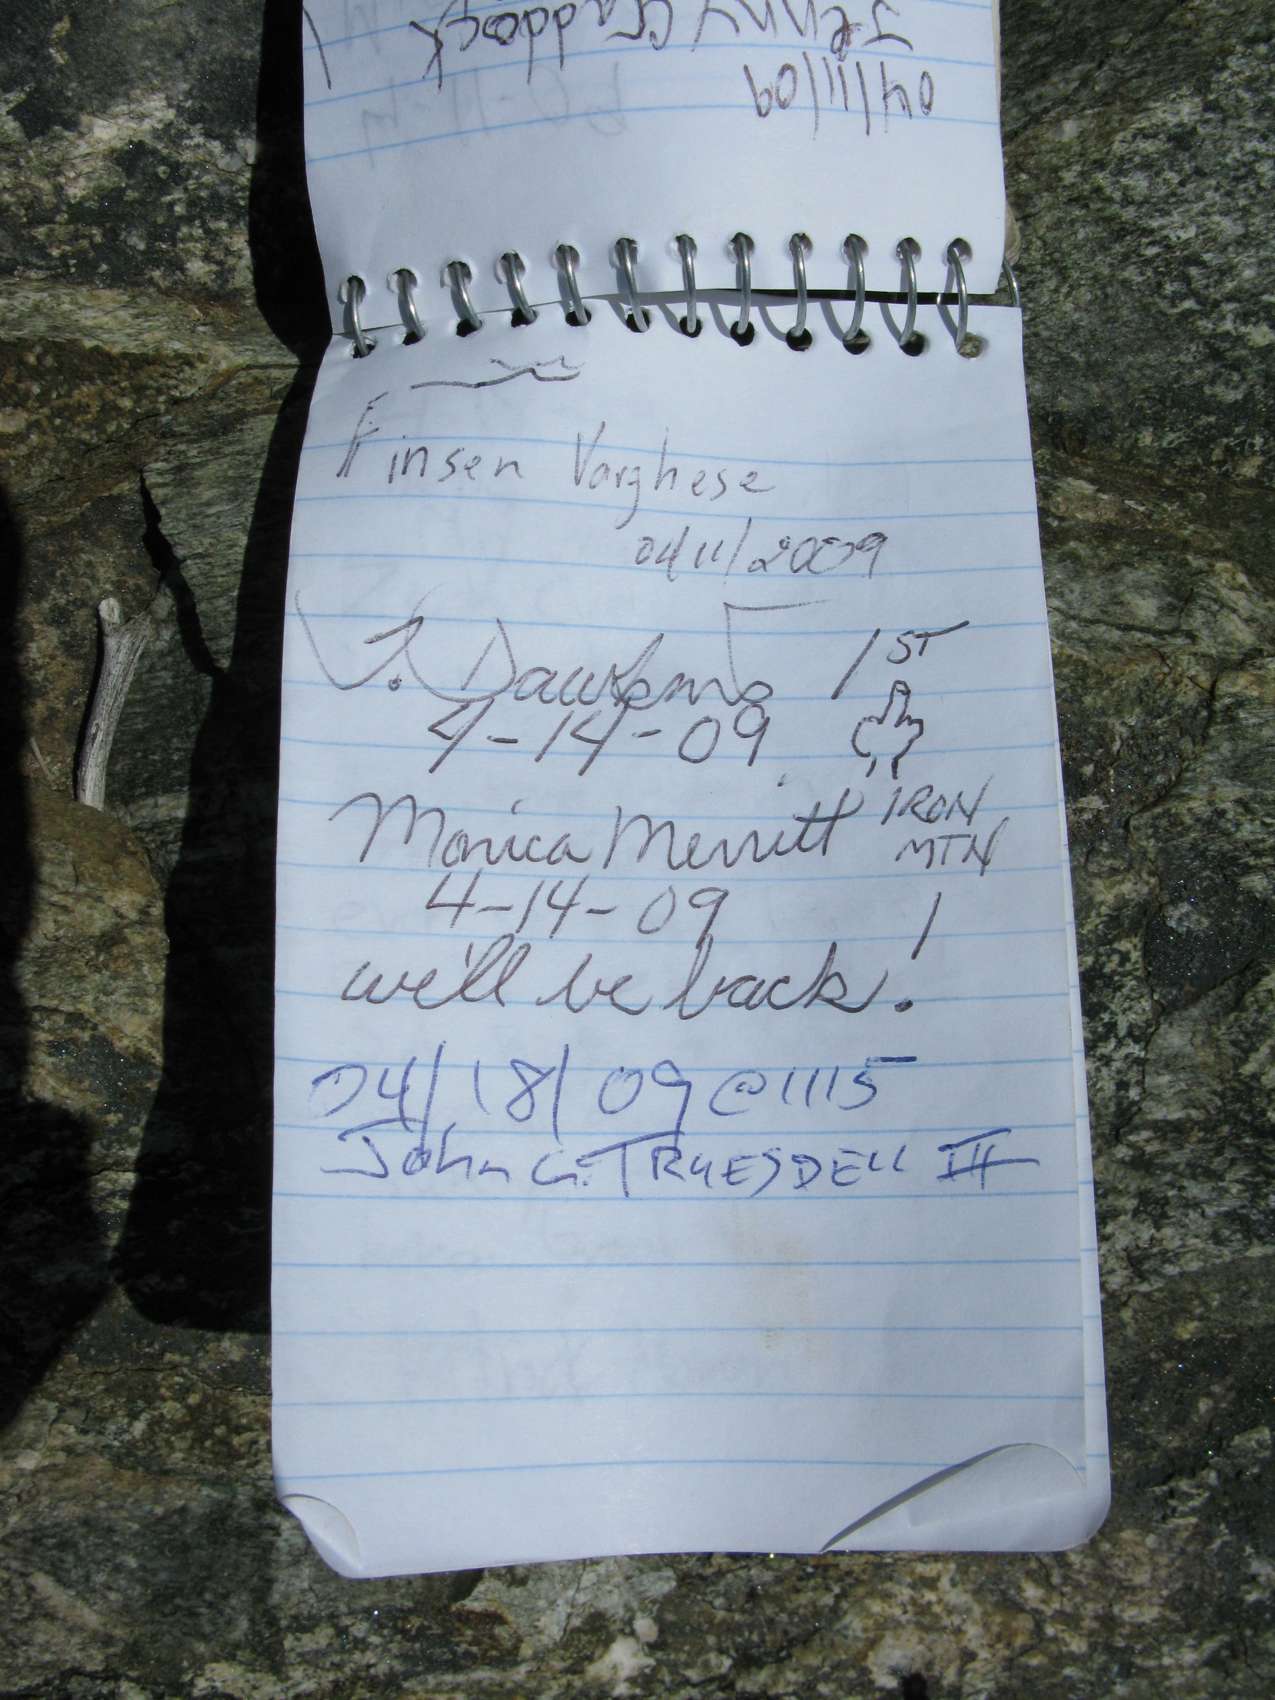 04/11/09
Jenny Craddock
Finsen Varghese
04/11/2009
J. Dawkins 1ST
4-14-09
Monica Merritt IRON
MTN
4-14-09
we'll be back!
04/18/09 @ 1115
John G. TRUESDELL III